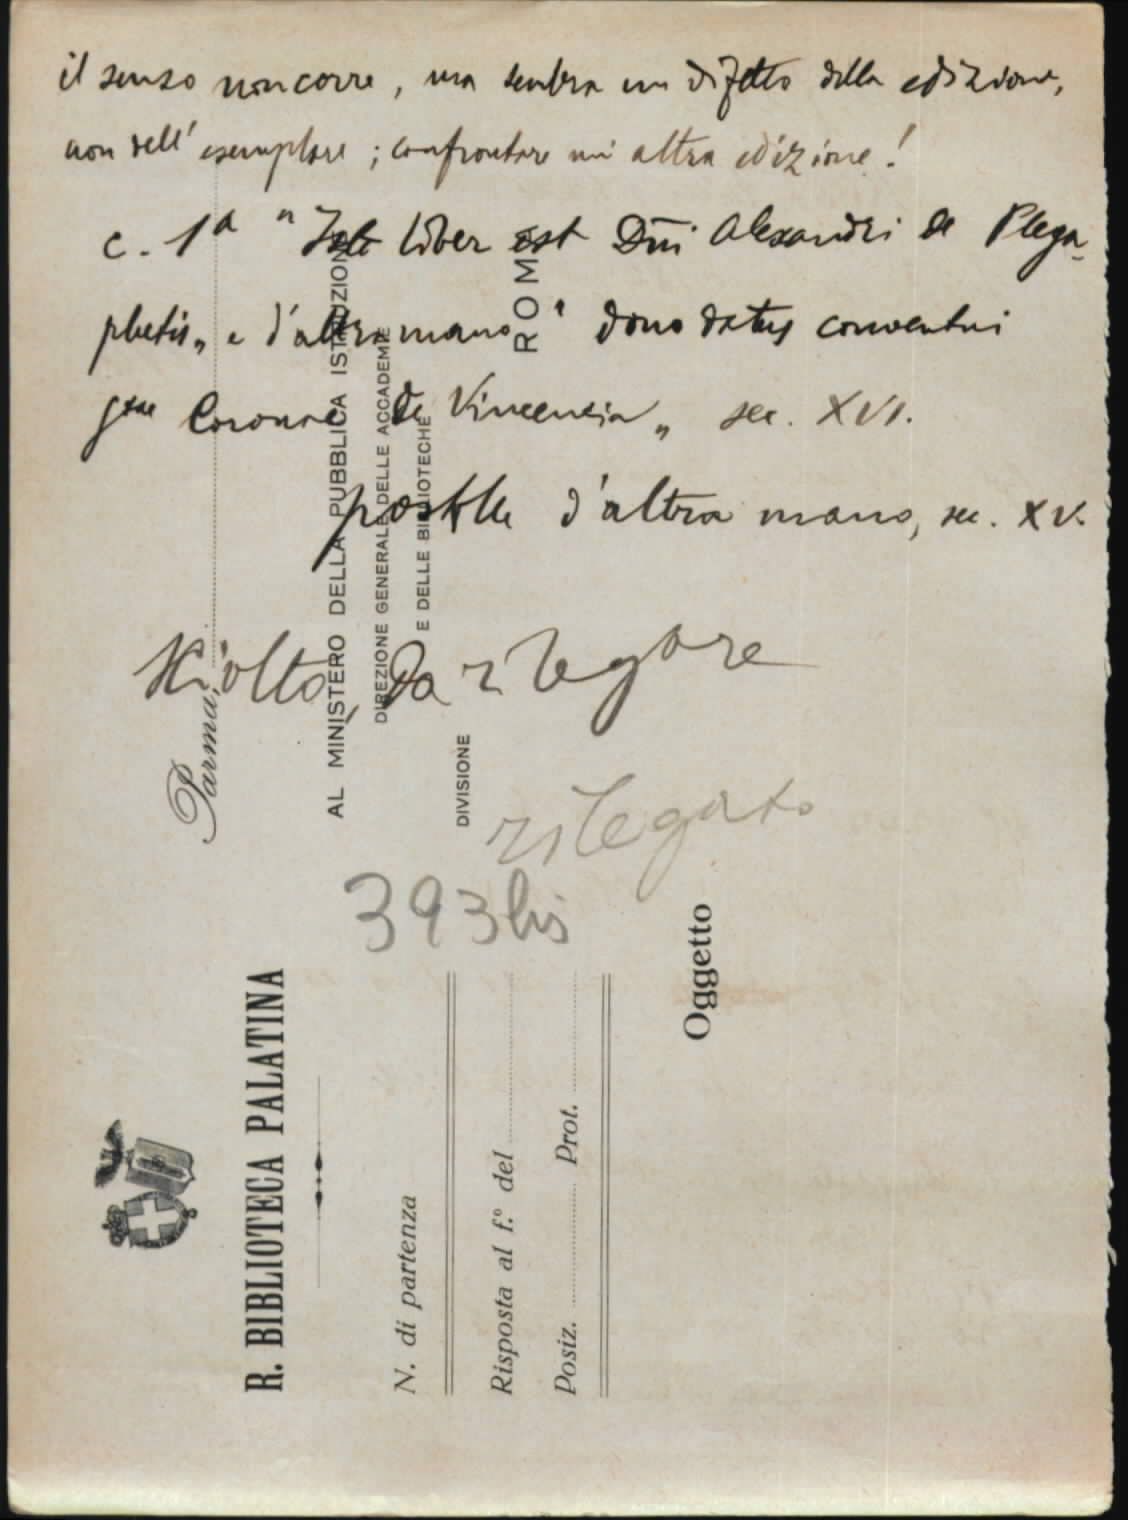 il senso non corre, ma sembra un difetto della edizione,
non dell' esemplare; confrontare un' altra edizione!
c. 1ª "Iste liber est Dñi Alexandri de Plega-
phetis„ e d'altra mano " dono datus conventui
Stae Coronae de Vincencia„ sec. XVI.
postille d'altra mano, sec. XV.
Molto da rilegare
rilegato
393 bis
Parma,
AL MINISTERO DELLA PUBBLICA ISTRUZIONE
DIREZIONE GENERALE DELLE ACCADEMIE
E DELLE BIBLIOTECHE
ROMA
DIVISIONE
R. BIBLIOTECA PALATINA
N. di partenza
Risposta al f.º del
Posiz. Prot.
Oggetto